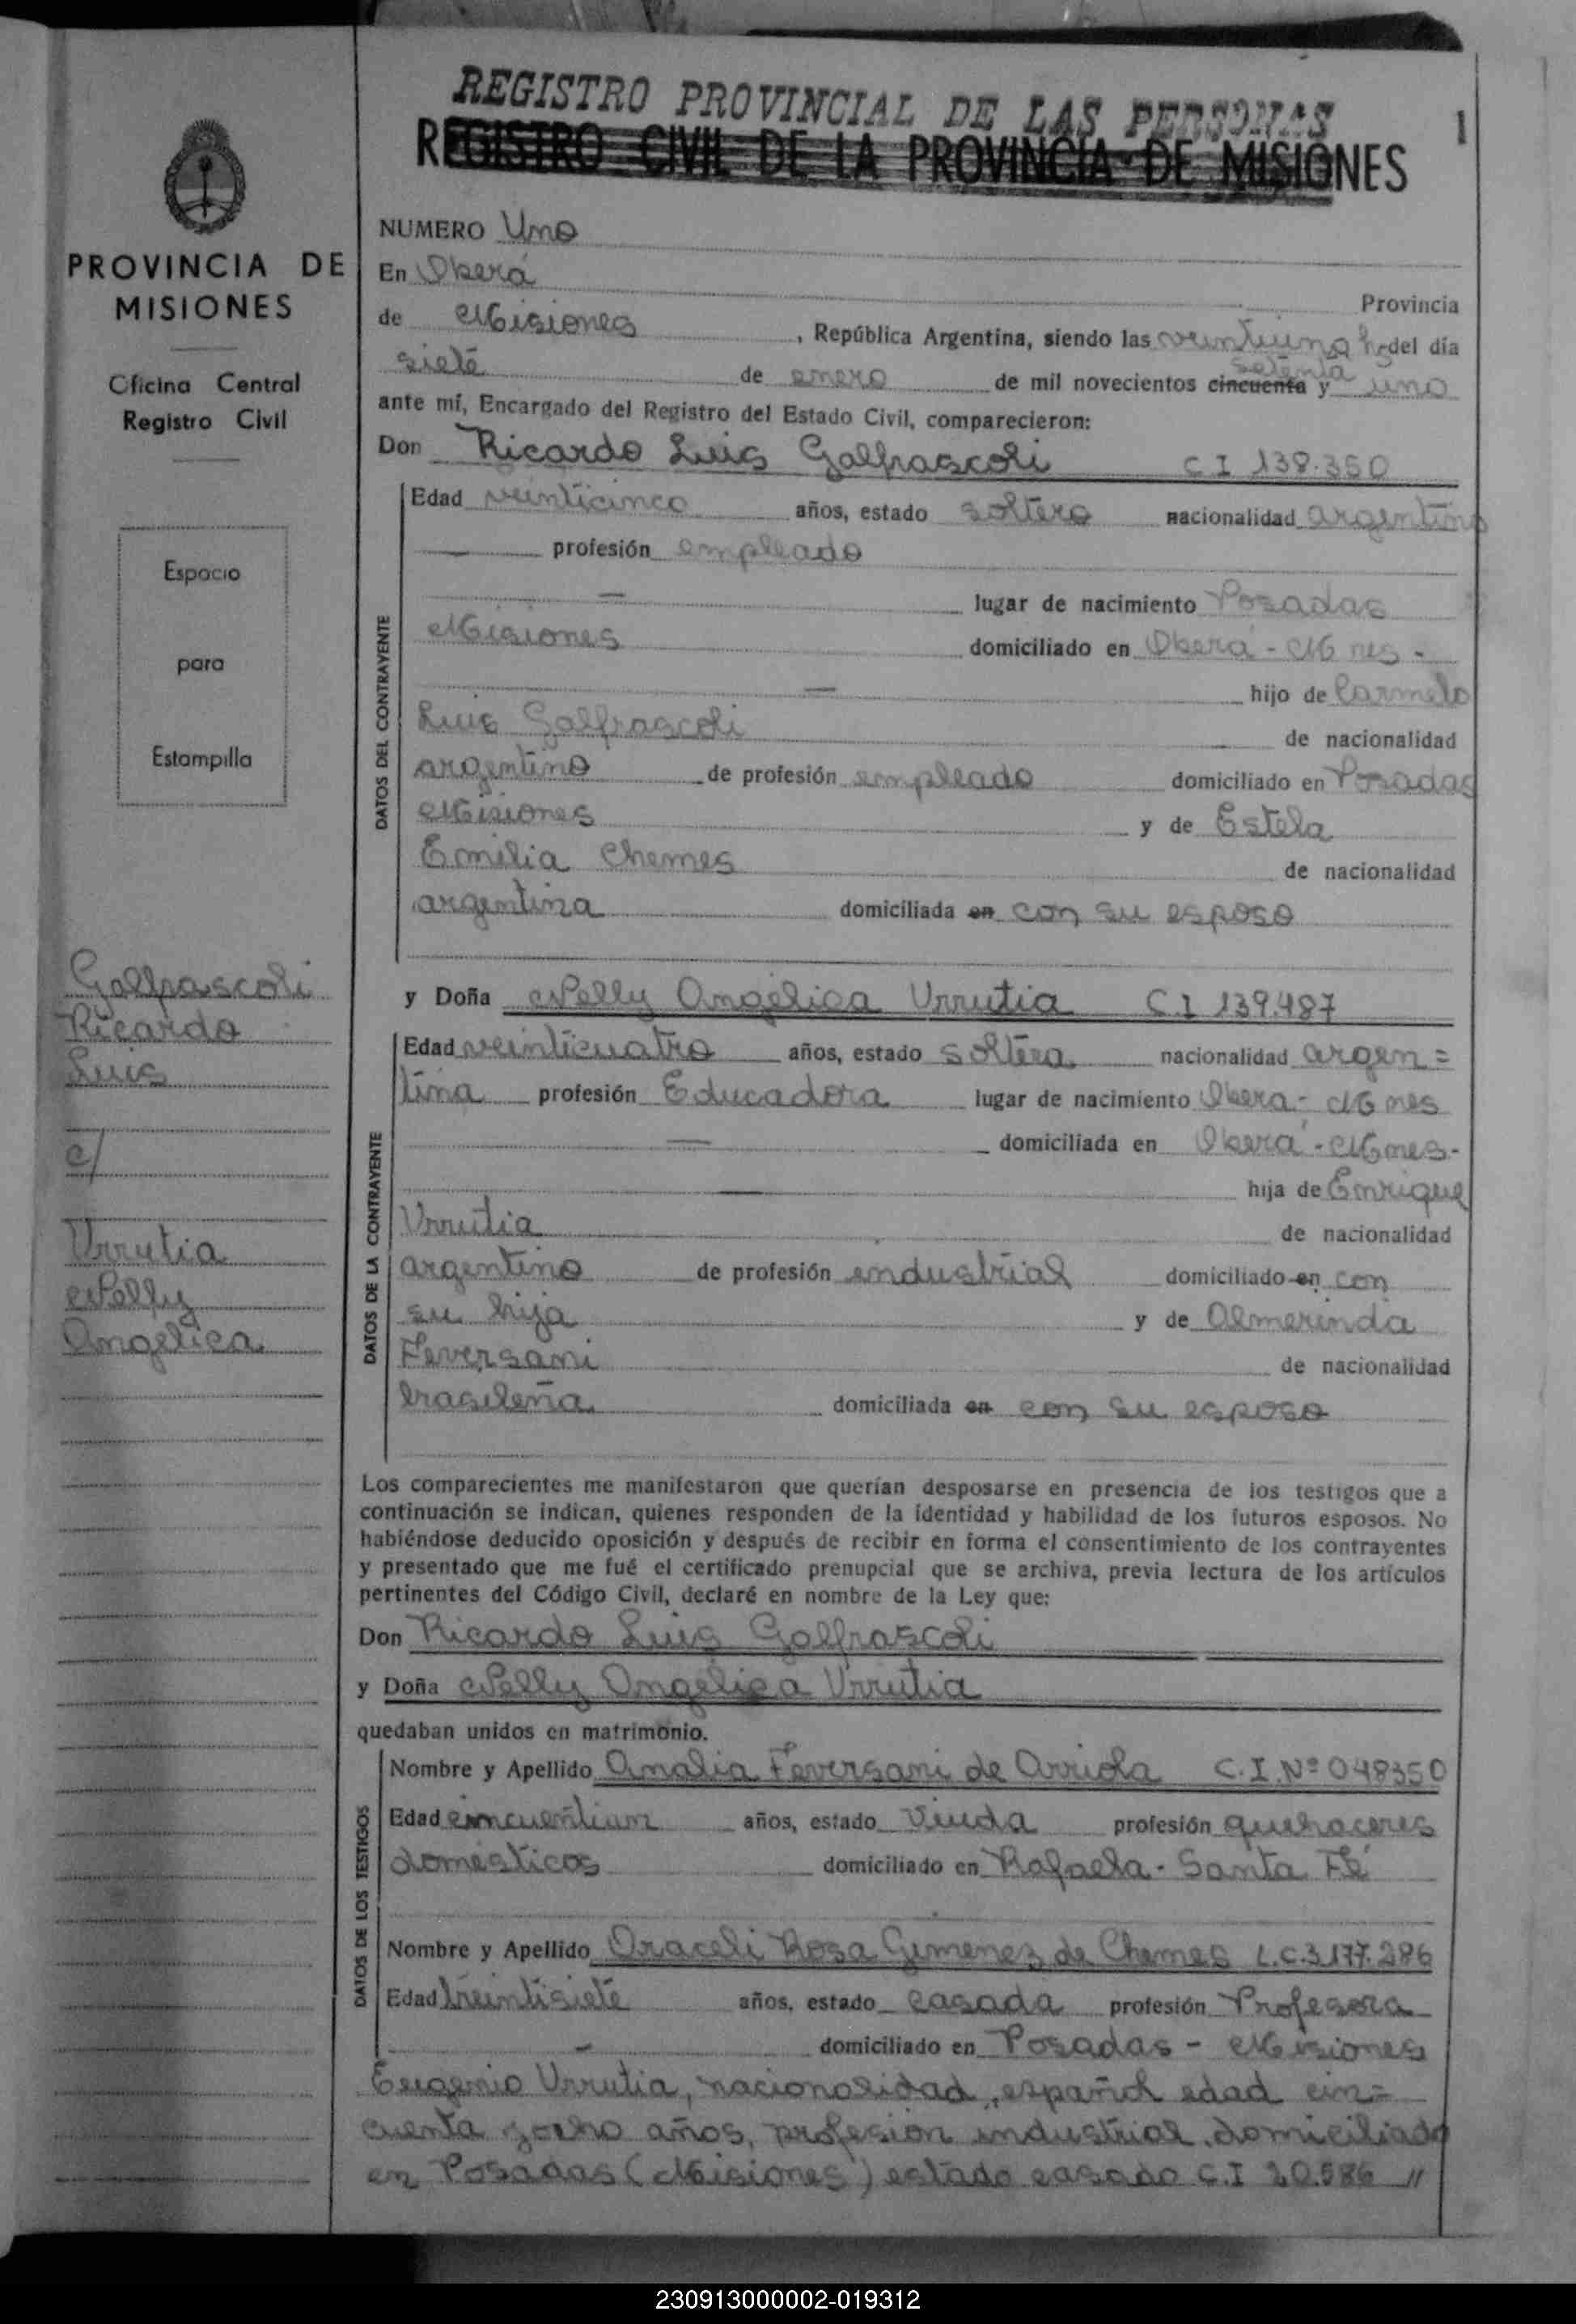 REGISTRO PROVINCIAL DE LAS PERSONAS
REGISTRO CIVIL DE LA PROVINCIA DE MISIONES
1
PROVINCIA DE
MISIONES
Oficina Central
Registro Civil
Espacio
para
Estampilla
Galfrascoli
Ricardo
Luis
c/
Urrutia
Nelly
Angelica
NUMERO Uno
En Oberá
Provincia
de Misiones, República Argentina, siendo las veintiuna hs del día
setenta
siete de enero de mil novecientos cincuenta y uno
ante mí, Encargado del Registro del Estado Civil, comparecieron:
Don Ricardo Luis Galfrascoli C I 138.350
DATOS DEL CONTRAYENTE
Edad veinticinco años, estado soltero nacionalidad argentino
profesión empleado
lugar de nacimiento Posadas
Misiones domiciliado en Oberá - Mnes -
hijo de Carmelo
Luis Galfrascoli de nacionalidad
argentino de profesión empleado domiciliado en Posadas
Misiones y de Estela
Emilia Chemes de nacionalidad
argentina domiciliada en con su esposo
y Doña Nelly Angélica Urrutia C.I 139.487
DATOS DE LA CONTRAYENTE
Edad veinticuatro años, estado soltera nacionalidad argen=
tina profesión Educadora lugar de nacimiento Oberá - Mnes
domiciliada en Oberá - Mnes -
hija de Enrique
Urrutia de nacionalidad
argentino de profesión industrial domiciliado en con
su hija y de Almerinda
Feversani de nacionalidad
brasileña domiciliada en con su esposo
Los comparecientes me manifestaron que querían desposarse en presencia de los testigos que a
continuación se indican, quienes responden de la identidad y habilidad de los futuros esposos. No
habiéndose deducido oposición y después de recibir en forma el consentimiento de los contrayentes
y presentado que me fué el certificado prenupcial que se archiva, previa lectura de los artículos
pertinentes del Código Civil, declaré en nombre de la Ley que:
Don Ricardo Luis Galfrascoli
y Doña Nelly Angélica Urrutia
quedaban unidos en matrimonio.
DATOS DE LOS TESTIGOS
Nombre y Apellido Amalia Feversani de Arriola C.I. Nº 048350
Edad cincuentiun años, estado Viuda profesión quehaceres
domesticos domiciliado en Rafaela - Santa Fé
Nombre y Apellido Araceli Rosa Gimenez de Chemes L.C. 3.177.286
Edad treintisiete años, estado casada profesión Profesora
domiciliado en Posadas - Misiones
Eugenio Urrutia, nacionalidad, español edad cin=
cuenta yocho años, profesión industrial, domiciliado
en Posadas (Misiones) estado casado C.I 20.586 //
230913000002-019312